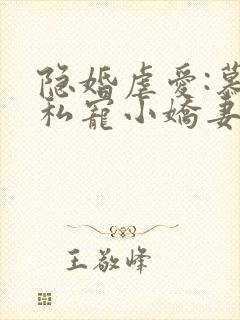 隐婚虐爱:慕
私宠小娇妻
王敬峰